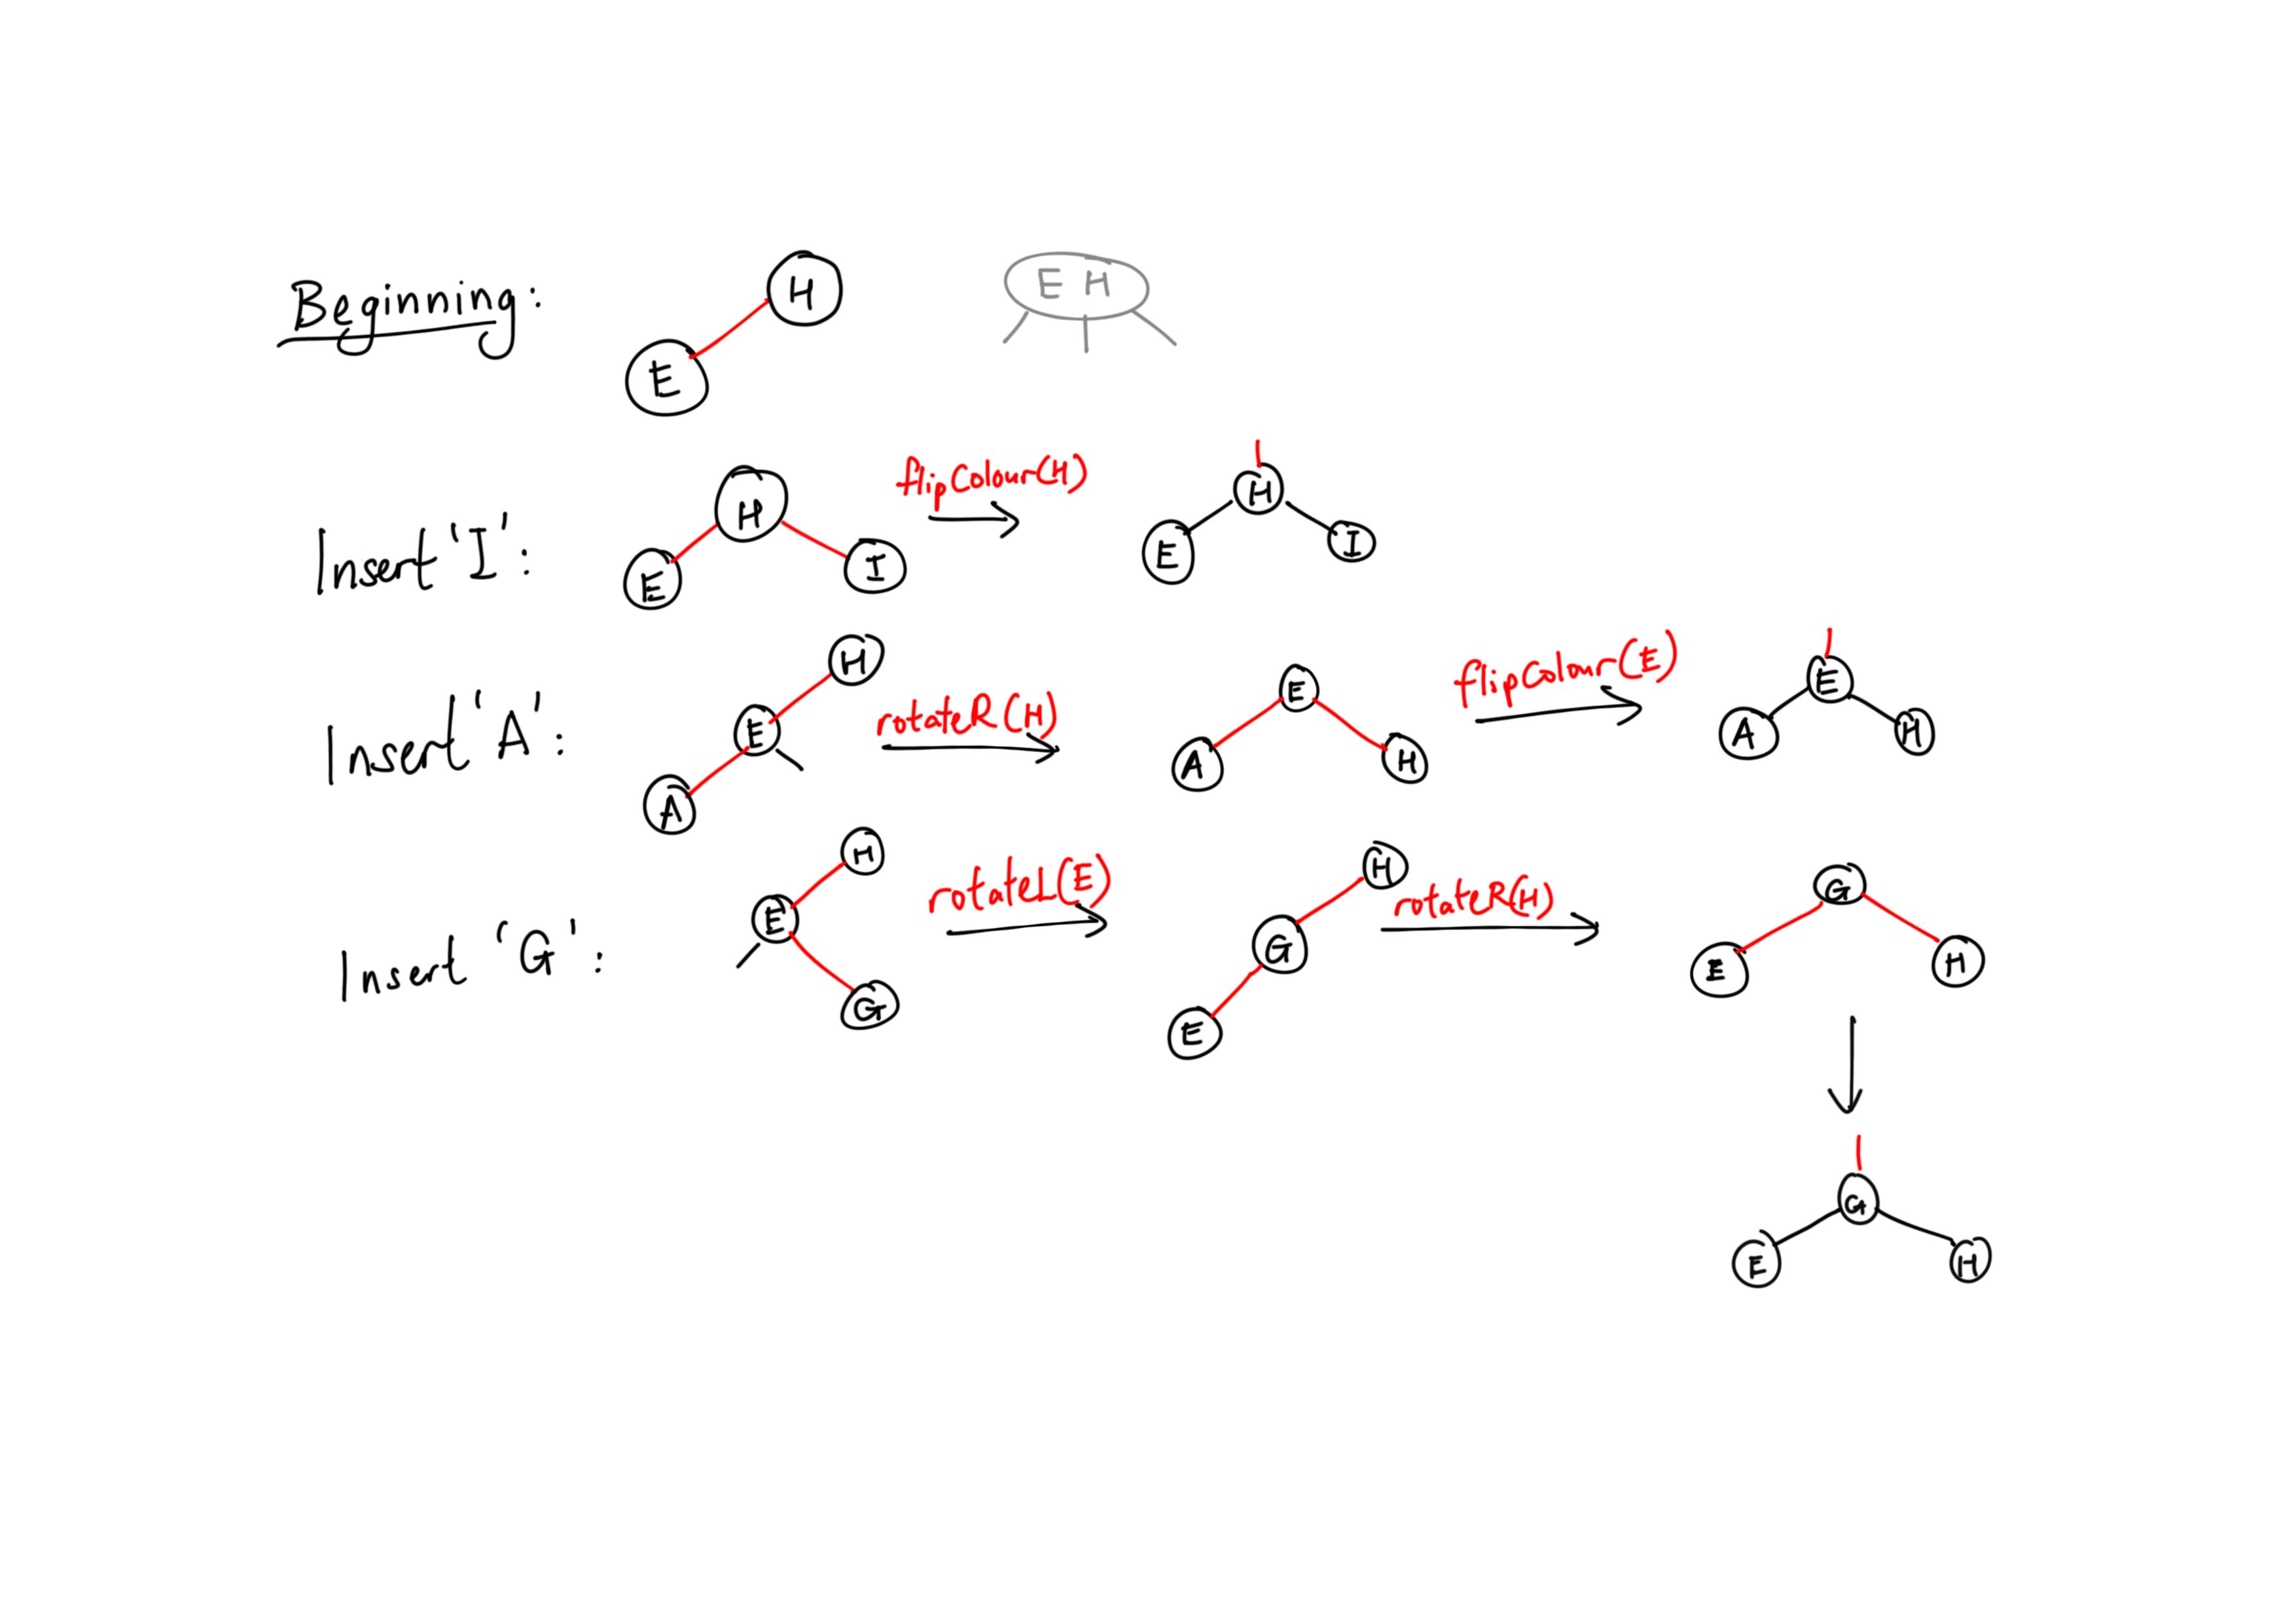 Beginning:
H
E
E H
Insert 'I':
H
E
I
flipColour(H)
H
E
I
Insert 'A':
H
E
A
rotateR(H)
E
A
H
flipColour(E)
E
A
H
Insert 'G':
H
E
G
rotateL(E)
H
G
E
rotateR(H)
G
E
H
G
E
H